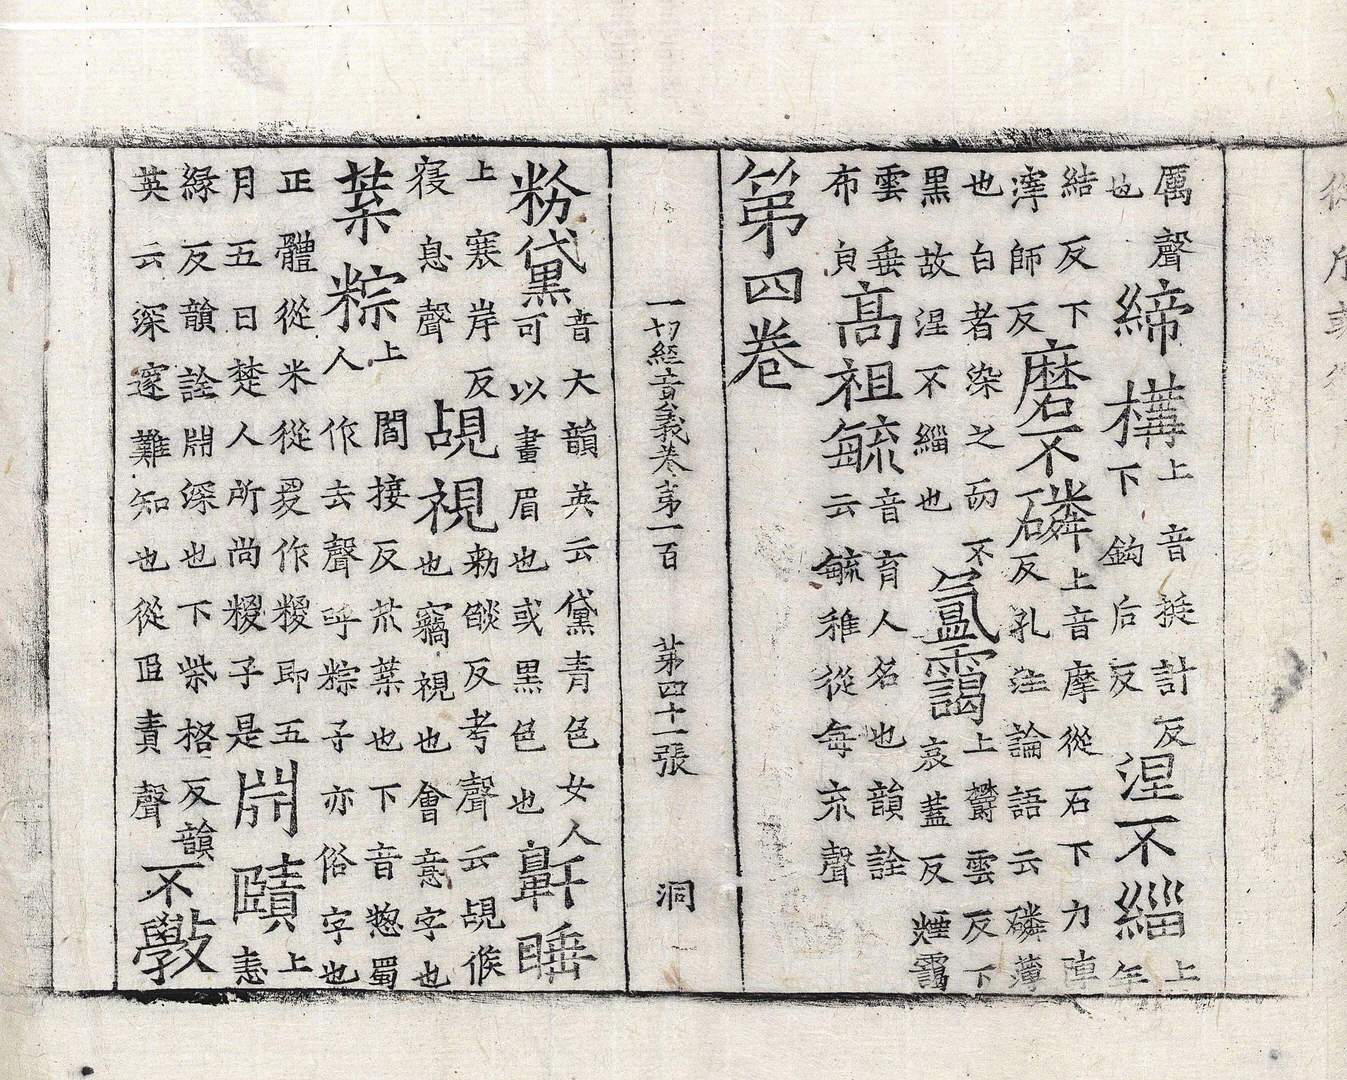 厲聲也締構上音㨒計反下鈎后反涅不緇上年
結反下滓師反磨不磷上音摩從石下力陣反孔注論語云磷薄
也白者染之而不黒故涅不緇也氳靄上欝雲反下哀蓋反煙靄
雲垂布皃高祖毓音育人名也韻詮云毓稚從每㐬聲
第四卷
一切經音義卷第一百 第四十一張 洞
粉黛音大韻英云黛青色女人可以畫眉也或黒色也鼾睡
上寒岸反寑息聲覘視勑燄反考聲云覘候也竊視也會意字也
葉粽上閻接反葉也下音惣蜀人作去聲呼粽子亦俗字也
正體從米從㚇作糉即五月五日楚人所尚糉子是賾上恚
緑反韻詮深也下柴格反韻英云深邃難知也從𦣞責聲不斆